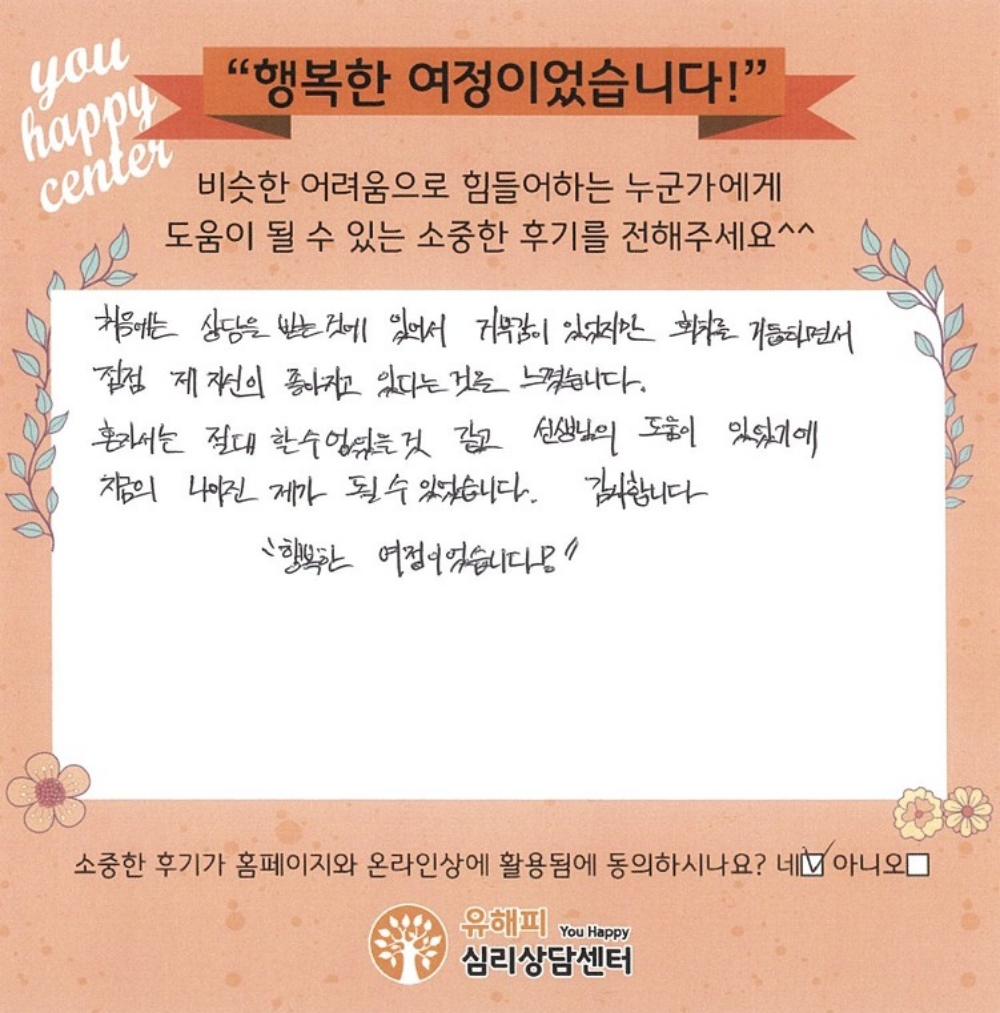 you
happy
center
“행복한 여정이었습니다!”
비슷한 어려움으로 힘들어하는 누군가에게
도움이 될 수 있는 소중한 후기를 전해주세요^^
처음에는 상담을 받는것에 있어서 거부감이 있었지만 회차를 거듭하면서
점점 제 자신이 좋아지고 있다는 것을 느꼈습니다.
혼자서는 절대 할수 없었는것 같고 선생님의 도움이 있었기에
지금의 나아진 제가 될 수 있었습니다. 감사합니다
"행복한 여정이었습니다"
소중한 후기가 홈페이지와 온라인상에 활용됨에 동의하시나요? 네☑ 아니오☐
유해피 You Happy
심리상담센터